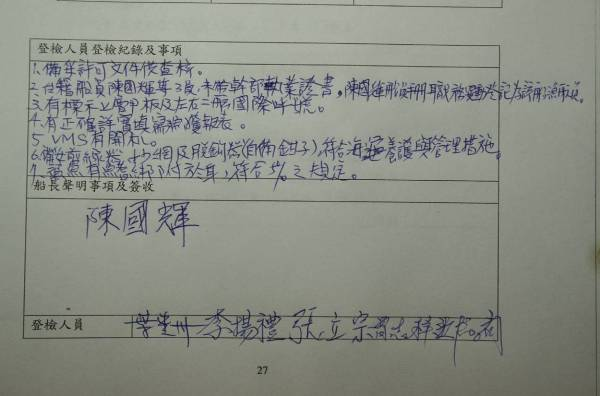 登檢人員登檢紀錄及事項
1.備妥許可文件供查核。
2.台籍船員陳國輝等3員,未帶幹部執業證書。陳國輝船員手冊職務
3.有標示上層甲板及左右二舷國際呼號。
4.有正確詳實填寫漁獲報表。
5.VMS有開机。
6.備剪線器、抄網及脫鉤器(自備鉗子),符合海 養護與管理措施。
7.鯊魚有 綁附於身,符合5%之規定。
船長聲明事項及簽收
陳國輝
登檢人員
李揚禮 張立宗
27